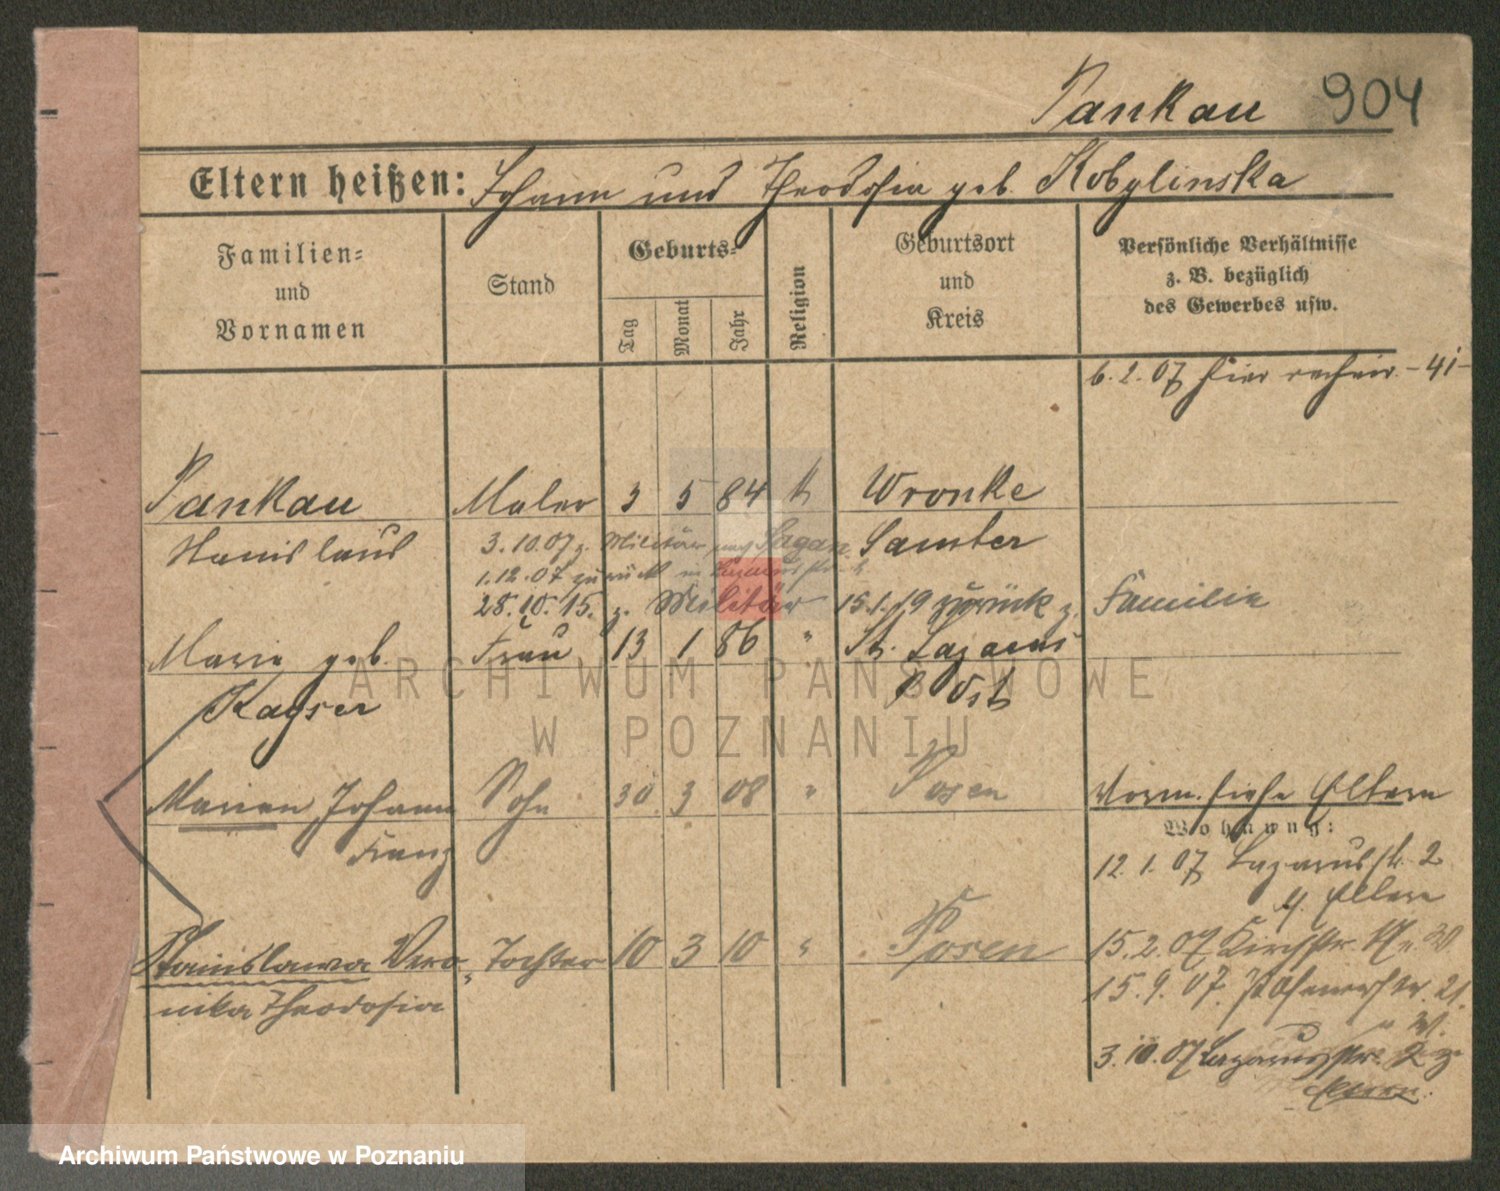 Pankau 904
Eltern heißen: Johann und Theodosia geb. Kobylinska
Familien-
und
Vornamen
Stand
Geburts-
Tag
Monat
Jahr
Religion
Geburtsort
und
Kreis
Persönliche Verhältnisse
z. B. bezüglich
des Gewerbes usw.
6. 2. 07 hier
Pankau Maler 3 5 84 k Wronke
Stanislaus
3.10.07 z. Militär nach Sagan Samter
1.12.07 zurück in Lazarusstr. 2
28.10.15. z. Militär 15.1.19 zurück z. Familie
Marie geb. Frau 13 1 86 " St. Lazarus
Kayser P Ost
Marian Johann Sohn 30 3 08 " Posen
Franz
Vorm. siehe Eltern
Wohnung:
12. 1. 07 Lazarusstr. 2
z. Eltern
Stanislawa Vero- Tochter 10 3 10 " Posen
nika Theodosia
15. 2. 07 Kirchstr.
15. 9. 07. 21.
W.
3. 10. 07 Lazarusstr. 2 z.
Eltern.
ARCHIWUM PAŃSTWOWE
W POZNANIU
Archiwum Państwowe w Poznaniu